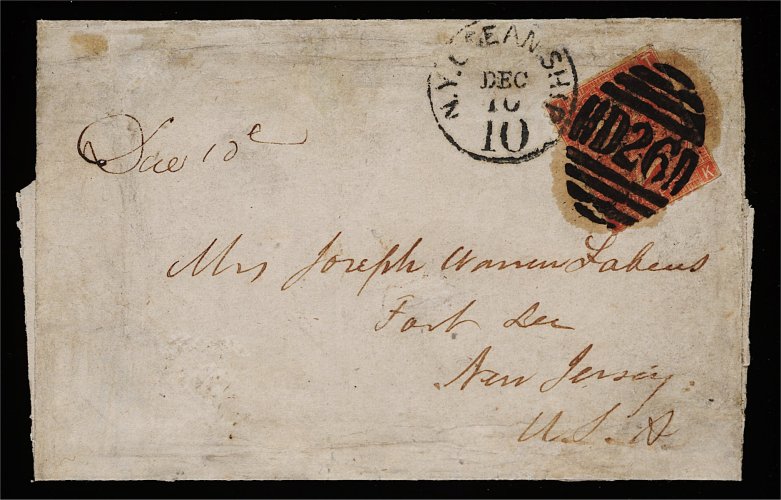 N.Y. OCEAN SHIP
DEC
10
10
D26A
K
Due 10c
Mrs Joseph Warren Fabens
Fort Lee
New Jersey.
U.S.A